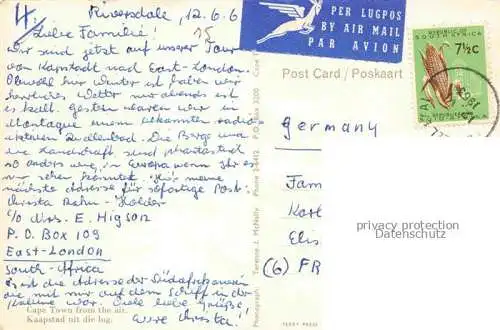 Riversdale, 12.6.6
Liebe Familie!
Wir sind jetzt auf unserer Tour
von Kapstadt nach East-London.
Obwohl hier Winter ist haben wir
herrliches Wetter nur abends ist
es kalt. Gestern waren wir in
Montague einem bekannten radio
aktiven Quellenbad. Die Berge und
die Landschaft sind phantastisch
so anders wie in Europa wenn Ihr es
nur sehen könntet. Hier meine
nächste Adresse für sofortige Post:
Christa Hahn-Holder
c/o Mrs. E. Higson
P.O. Box 109
East-London
South-Africa
es ist die Adresse der Südafrikanerin
die mit mir auf dem Schiff in der
Kabine war. Viele liebe Grüße
Eure Christa!
Cape Town from the air.
Kaapstad uit die lug.
Photograph: Terence J. McNally
Phone 2-6412
P.O. Box 3200
PER LUGPOS
BY AIR MAIL
PAR AVION
Post Card / Poskaart
REPUBLIC OF
SOUTH AFRICA
7½c
Germany
Fam
Karl
Elis
(6) FR
privacy protection
Datenschutz